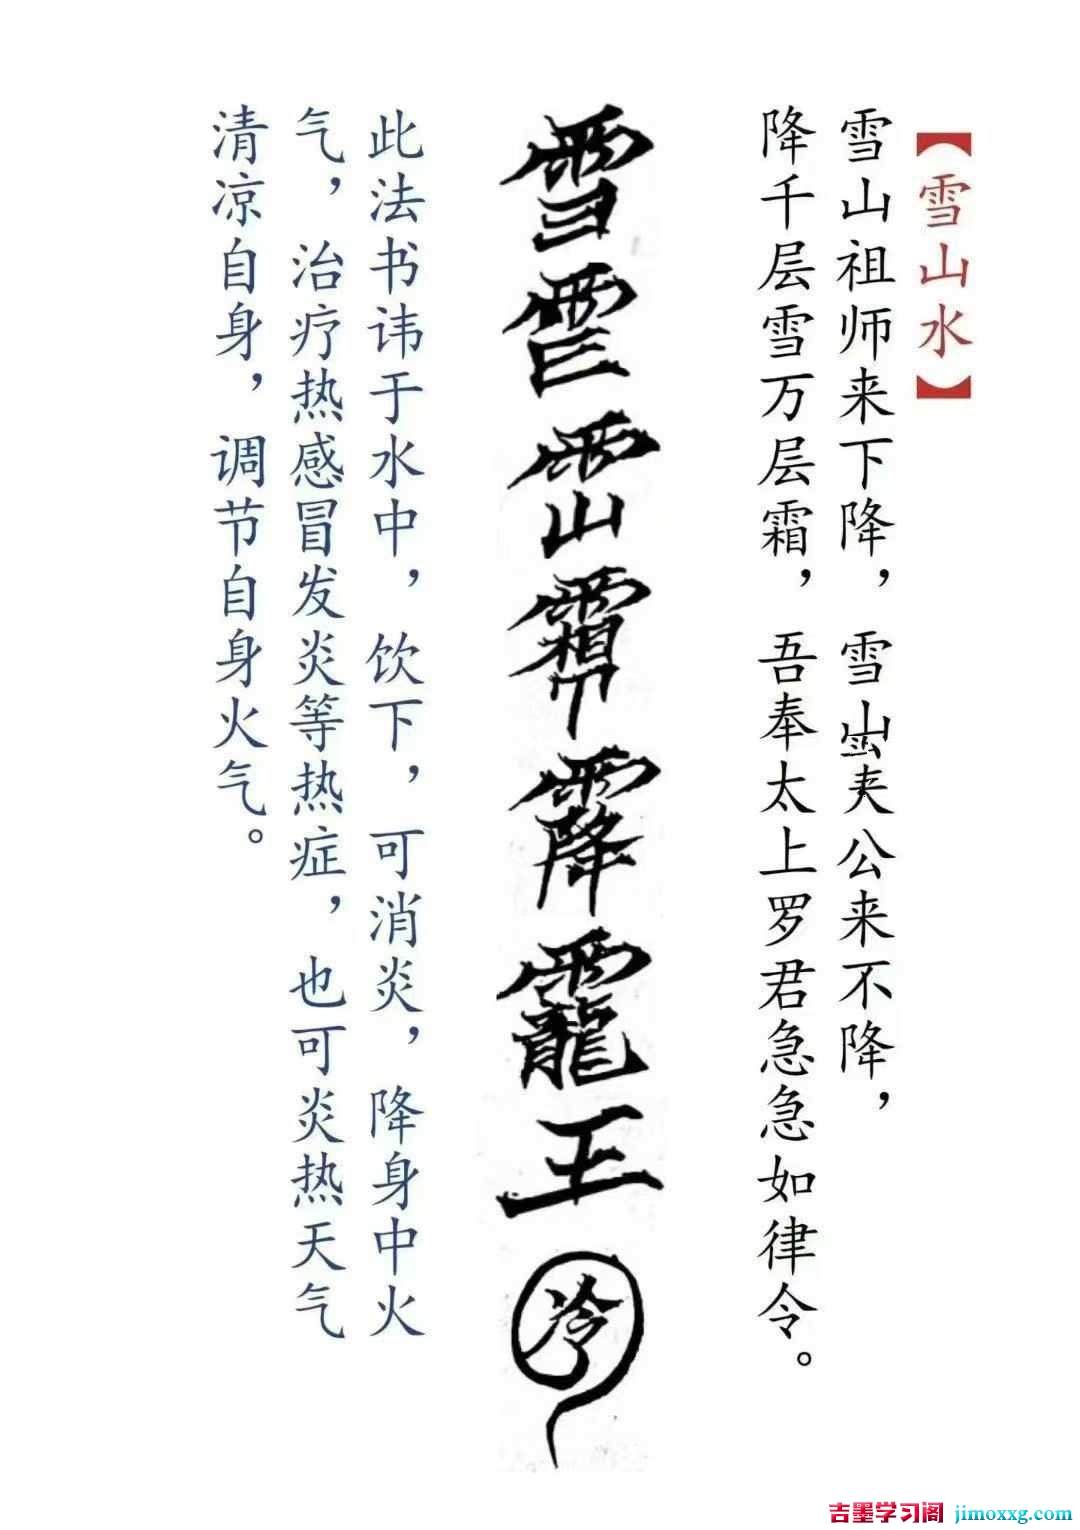 【雪山水】
雪山祖师来下降，雪山太公来不降，
降千层雪万层霜，吾奉太上罗君急急如律令。
王
冷
此法书讳于水中，饮下，可消炎，降身中火
气，治疗热感冒发炎等热症，也可炎热天气
清凉自身，调节自身火气。
吉墨学习阁 jimoxxg.com